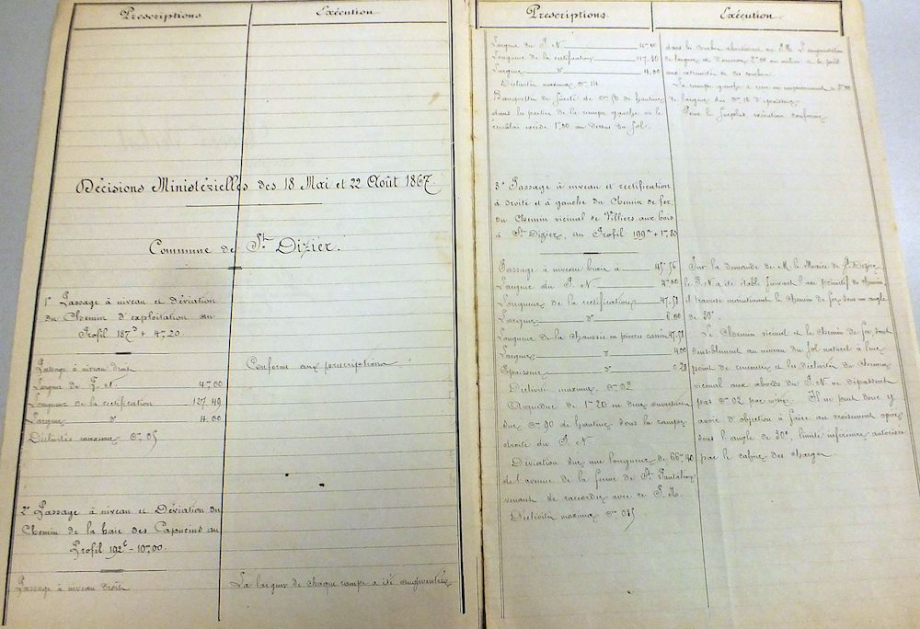 Prescriptions
Exécution
Décisions Ministérielles des 18 Mai et 22 Août 1867
Commune de St Dizier.
1° Passage à niveau et Déviation
du Chemin d'exploitation au
Profil 187 + 47.20
Passage à niveau droit
Conforme aux prescriptions
Largeur du P. N 4.00
Longueur de la rectification 127.49
Largeur d° 4.00
Déclivité maxima 0m 05
2° Passage à niveau et Déviation du
Chemin de la haie des Capucins au
Profil 192 - 107.00
Passage à niveau droit
La largeur de chaque rampe a été augmentée
Prescriptions
Exécution
Largeur du P. N 4.00
Longueur de la rectification 117.80
Largeur d° 4.00
Déclivité maxima
Banquettes de sûreté de de hauteur
dans la partie de la rampe gauche où le
remblai excède 1m00 au dessus du sol.
La rampe gauche a reçu un
de largeur sur d'épaisseur
Pour le surplus, exécution conforme
3° Passage à niveau et rectification
à droite et à gauche du Chemin de fer
du Chemin vicinal de Villiers aux bois
à St Dizier, au Profil 199 + 17.80
Passage à niveau biais à
Largeur du P. N 4.00
Longueur de la rectification 47.51
Largeur d° 6.00
Longueur de la chaussée en pierres cassées 47.51
Largeur d° 4.00
Epaisseur d° 0.20
Déclivité maxima 0m 02
Aqueduc de 1m 20 d'ouverture
sur 0m 90 de hauteur sous la rampe
droite du P. N
Déviation sur une longueur de 66m 40
de l'avenue de la ferme de St Pantaléon
venant se raccorder avec ce P. N.
Déclivité maxima 0m 015
Sur la demande de M. le Maire de St Dizier
le P. N a été établi suivant l'axe primitif du chemin,
il traverse maintenant le chemin de fer sous un angle
de 30°.
Le Chemin vicinal et le chemin de fer sont
sensiblement au niveau du sol naturel à leur
point de rencontre et les déclivités du Chemin
vicinal aux abords du P. N ne dépassent
pas 0m 02 par mètre. Il ne peut donc y
avoir d'objection à faire au croisement opéré
sous l'angle de 30°, limite inférieure autorisée
par le cahier des charges